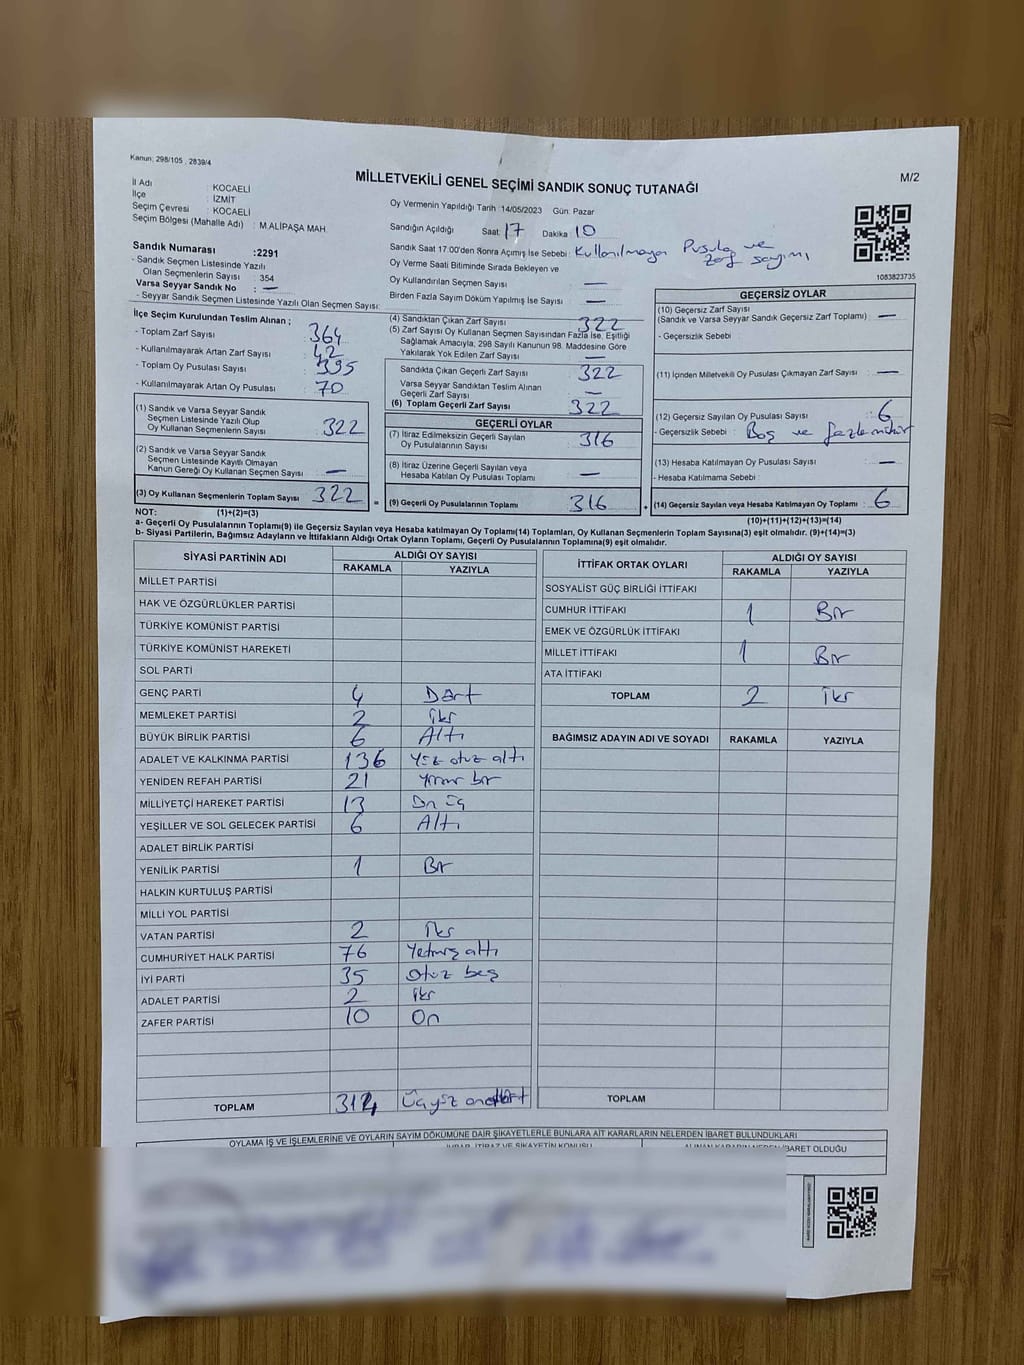 Kanun: 298/105 , 2839/4
MİLLETVEKİLİ GENEL SEÇİMİ SANDIK SONUÇ TUTANAĞI
M/2
İl Adı : KOCAELİ
İlçe : İZMİT
Seçim Çevresi : KOCAELİ
Seçim Bölgesi (Mahalle Adı) : M.ALİPAŞA MAH.
Sandık Numarası :2291
- Sandık Seçmen Listesinde Yazılı
Olan Seçmenlerin Sayısı : 354
Varsa Seyyar Sandık No : —
- Seyyar Sandık Seçmen Listesinde Yazılı Olan Seçmen Sayısı:
Oy Vermenin Yapıldığı Tarih :14/05/2023 Gün: Pazar
Sandığın Açıldığı Saat: 17 Dakika: 10
Sandık Saat 17.00'den Sonra Açımış İse Sebebi: Kullanılmayan Pusula ve
Zarf sayımı
Oy Verme Saati Bitiminde Sırada Bekleyen ve
Oy Kullandırılan Seçmen Sayısı : —
Birden Fazla Sayım Döküm Yapılmış İse Sayısı : —
1083823735
İlçe Seçim Kurulundan Teslim Alınan ;
- Toplam Zarf Sayısı : 364
- Kullanılmayarak Artan Zarf Sayısı : 42
- Toplam Oy Pusulası Sayısı : 395
- Kullanılmayarak Artan Oy Pusulası : 70
(1) Sandık ve Varsa Seyyar Sandık
Seçmen Listesinde Yazılı Olup
Oy Kullanan Seçmenlerin Sayısı 322
(2) Sandık ve Varsa Seyyar Sandık
Seçmen Listesinde Kayıtlı Olmayan
Kanun Gereği Oy Kullanan Seçmen Sayısı —
(3) Oy Kullanan Seçmenlerin Toplam Sayısı 322 =
(4) Sandıktan Çıkan Zarf Sayısı : 322
(5) Zarf Sayısı Oy Kullanan Seçmen Sayısından Fazla İse, Eşitliği
Sağlamak Amacıyla, 298 Sayılı Kanunun 98. Maddesine Göre
Yakılarak Yok Edilen Zarf Sayısı : —
Sandıkta Çıkan Geçerli Zarf Sayısı : 322
Varsa Seyyar Sandıktan Teslim Alınan
Geçerli Zarf Sayısı : —
(6) Toplam Geçerli Zarf Sayısı : 322
GEÇERLİ OYLAR
(7) İtiraz Edilmeksizin Geçerli Sayılan
Oy Pusulalarının Sayısı : 316
(8) İtiraz Üzerine Geçerli Sayılan veya
Hesaba Katılan Oy Pusulası Toplamı : —
(9) Geçerli Oy Pusulalarının Toplamı 316 +
GEÇERSİZ OYLAR
(10) Geçersiz Zarf Sayısı
(Sandık ve Varsa Seyyar Sandık Geçersiz Zarf Toplamı) : —
- Geçersizlik Sebebi :
(11) İçinden Milletvekili Oy Pusulası Çıkmayan Zarf Sayısı : —
(12) Geçersiz Sayılan Oy Pusulası Sayısı : 6
- Geçersizlik Sebebi : Boş ve fazla mühür
(13) Hesaba Katılmayan Oy Pusulası Sayısı : —
- Hesaba Katılmama Sebebi :
(14) Geçersiz Sayılan veya Hesaba Katılmayan Oy Toplamı : 6
NOT: (1)+(2)=(3) (10)+(11)+(12)+(13)=(14)
a- Geçerli Oy Pusulalarının Toplamı(9) ile Geçersiz Sayılan veya Hesaba katılmayan Oy Toplamı(14) Toplamları, Oy Kullanan Seçmenlerin Toplam Sayısına(3) eşit olmalıdır. (9)+(14)=(3)
b- Siyasi Partilerin, Bağımsız Adayların ve İttifakların Aldığı Ortak Oyların Toplamı, Geçerli Oy Pusulalarının Toplamına(9) eşit olmalıdır.
SİYASİ PARTİNİN ADI ALDIĞI OY SAYISI
RAKAMLA YAZIYLA
MİLLET PARTİSİ
HAK VE ÖZGÜRLÜKLER PARTİSİ
TÜRKİYE KOMÜNİST PARTİSİ
TÜRKİYE KOMÜNİST HAREKETİ
SOL PARTİ
GENÇ PARTİ 4 Dört
MEMLEKET PARTİSİ 2 iki
BÜYÜK BİRLİK PARTİSİ 6 Altı
ADALET VE KALKINMA PARTİSİ 136 Yüz otuz altı
YENİDEN REFAH PARTİSİ 21 Yirmi bir
MİLLİYETÇİ HAREKET PARTİSİ 13 On üç
YEŞİLLER VE SOL GELECEK PARTİSİ 6 Altı
ADALET BİRLİK PARTİSİ
YENİLİK PARTİSİ 1 Bir
HALKIN KURTULUŞ PARTİSİ
MİLLİ YOL PARTİSİ
VATAN PARTİSİ 2 İki
CUMHURİYET HALK PARTİSİ 76 Yetmiş altı
İYİ PARTİ 35 otuz beş
ADALET PARTİSİ 2 iki
ZAFER PARTİSİ 10 On
TOPLAM 314 Üçyüz ondört
İTTİFAK ORTAK OYLARI ALDIĞI OY SAYISI
RAKAMLA YAZIYLA
SOSYALİST GÜÇ BİRLİĞİ İTTİFAKI
CUMHUR İTTİFAKI 1 Bir
EMEK VE ÖZGÜRLÜK İTTİFAKI
MİLLET İTTİFAKI 1 Bir
ATA İTTİFAKI
TOPLAM 2 İki
BAĞIMSIZ ADAYIN ADI VE SOYADI RAKAMLA YAZIYLA
TOPLAM
OYLAMA İŞ VE İŞLEMLERİNE VE OYLARIN SAYIM DÖKÜMÜNE DAİR ŞİKAYETLERLE BUNLARA AİT KARARLARIN NELERDEN İBARET BULUNDUKLARI
İTİRAZ VE ŞİKAYETİN KONUSU ALINAN KARARIN NEDEN İBARET OLDUĞU